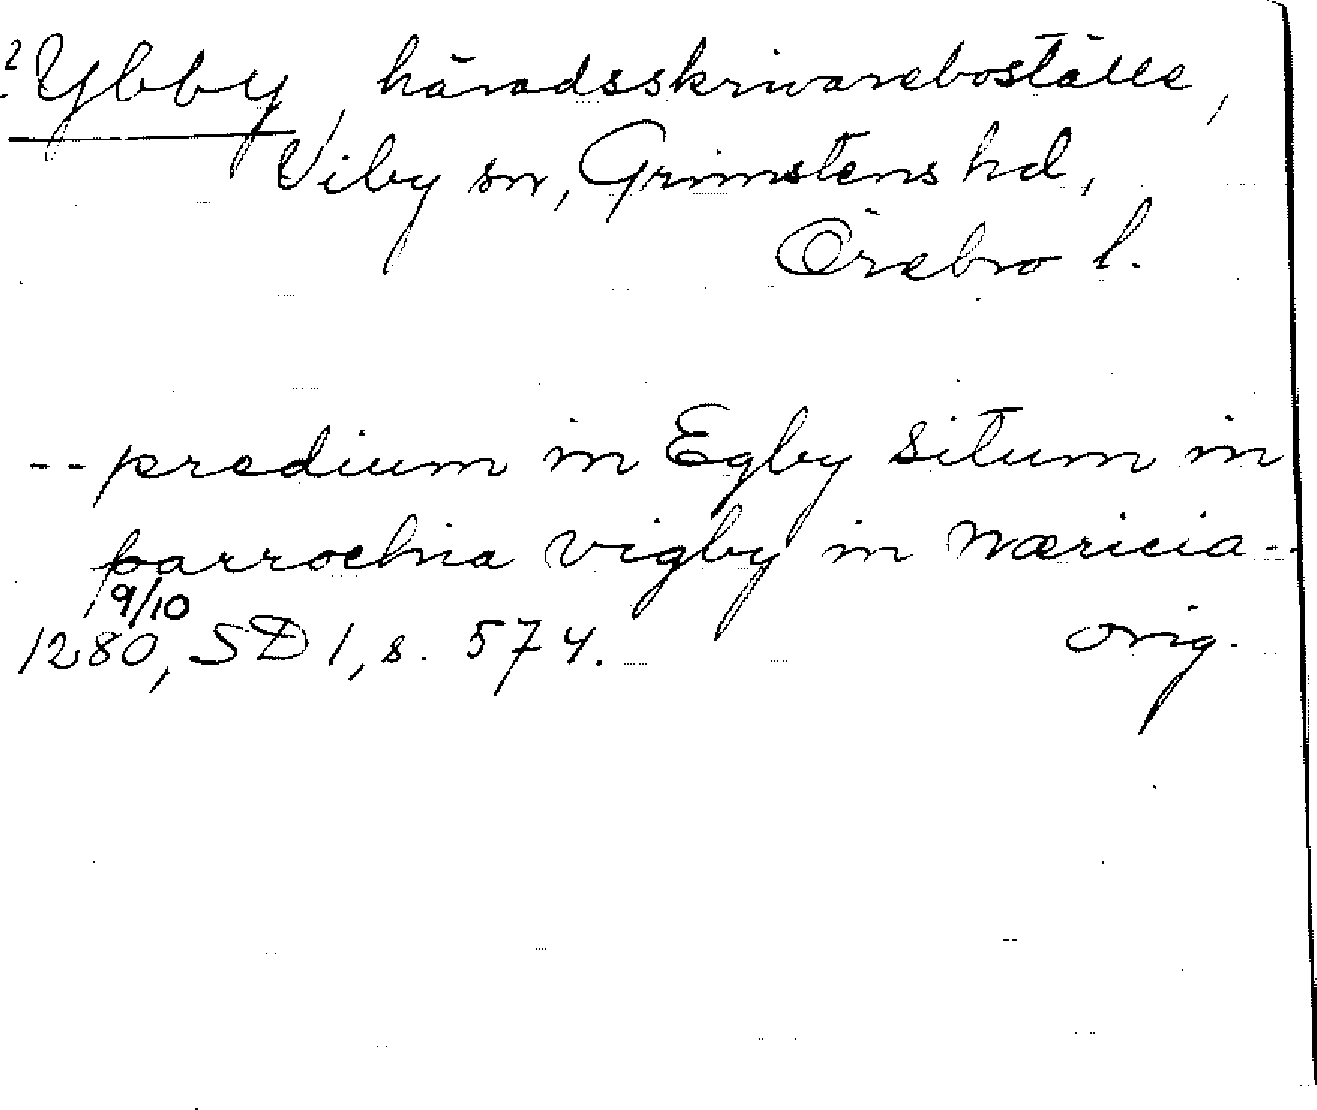 ? Ybby, häradsskrivareboställe,
Viby sn, Grimstens hd,
Örebro l.
-- predium in Egby situm in
parrochia vigby in Næricia --
9/10
1280, SD 1, s. 574. orig.